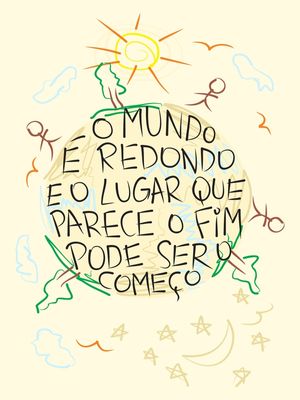 O MUNDO
É REDONDO
E O LUGAR QUE
PARECE O FIM
PODE SER O
COMEÇO